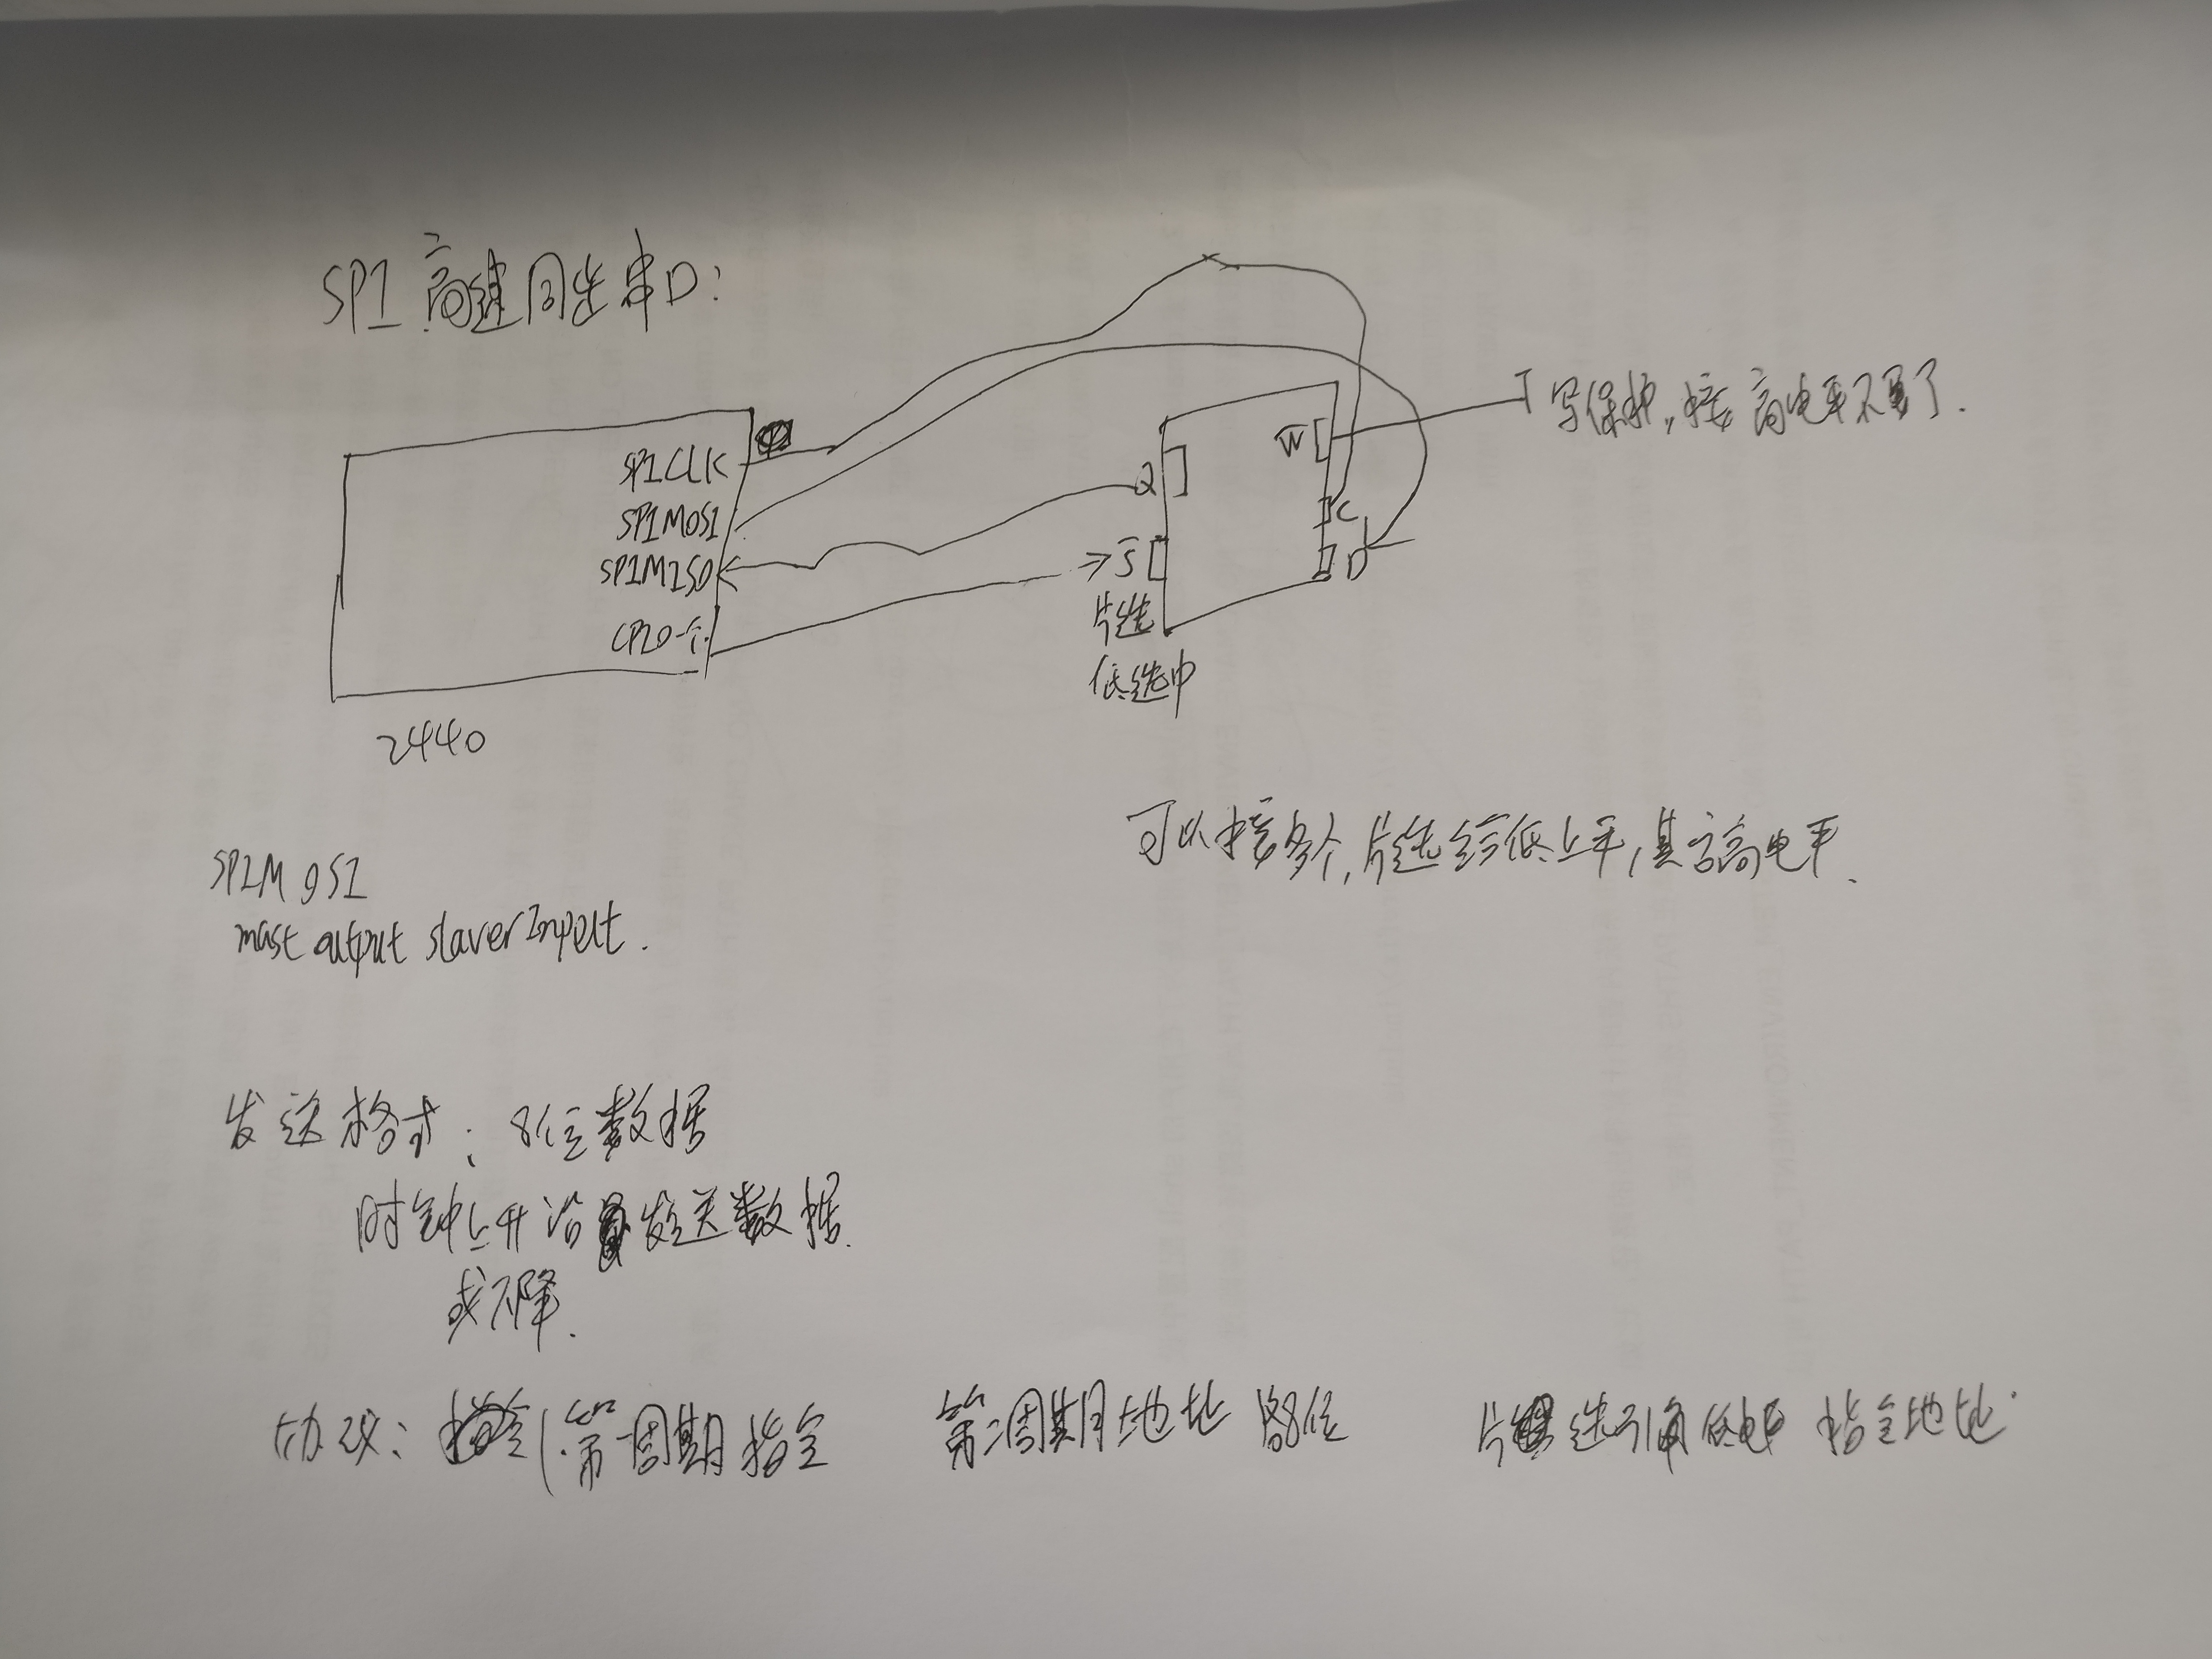 SPI 高速同步串口:
SPICLK
SPIMOSI
SPIMISO
GPIO一个.
2440
Q
S̅
片选
低选中
W̅
C
D
写保护, 接高电平不要了.
可以接多个, 片选给低上平, 其它高电平.
SPIMOSI
mast output slaverInput.
发送格式: 8位数据
时钟上升沿发送数据.
或下降.
协议: (第一周期指定 第二周期地址 8位 片选引脚低电平 指定地址.